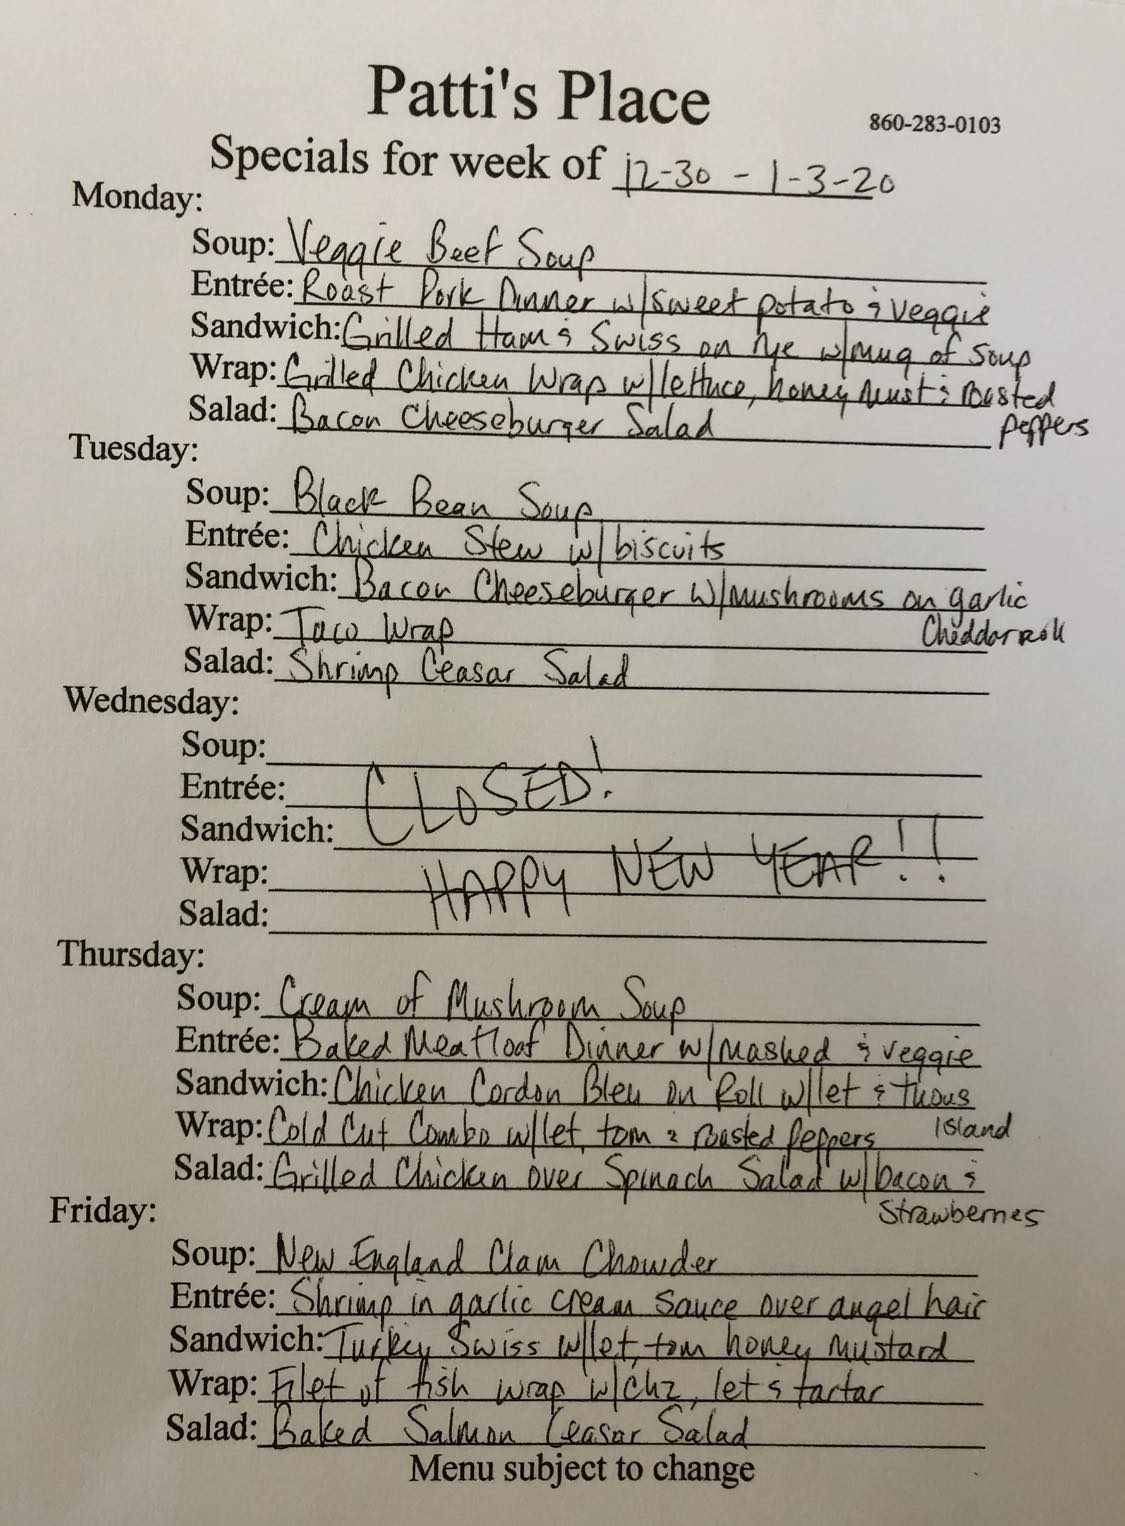 Patti's Place
860-283-0103
Specials for week of 12-30 - 1-3-20
Monday:
Soup: Veggie Beef Soup
Entrée: Roast Pork Dinner w/sweet potato & veggie
Sandwich: Grilled Ham & Swiss on rye w/mug of soup
Wrap: Grilled Chicken Wrap w/lettuce, honey must & roasted
peppers
Salad: Bacon Cheeseburger Salad
Tuesday:
Soup: Black Bean Soup
Entrée: Chicken Stew w/biscuits
Sandwich: Bacon Cheeseburger w/mushrooms on garlic
Cheddar roll
Wrap: Taco Wrap
Salad: Shrimp Ceasar Salad
Wednesday:
Soup:
Entrée: CLOSED!
Sandwich:
Wrap: HAPPY NEW YEAR!!
Salad:
Thursday:
Soup: Cream of Mushroom Soup
Entrée: Baked Meatloaf Dinner w/mashed & veggie
Sandwich: Chicken Cordon Bleu on Roll w/let & thous
Island
Wrap: Cold Cut Combo w/let, tom & roasted peppers
Salad: Grilled Chicken over Spinach Salad w/bacon &
Strawberries
Friday:
Soup: New England Clam Chowder
Entrée: Shrimp in garlic cream sauce over angel hair
Sandwich: Turkey Swiss w/let, tom honey mustard
Wrap: Filet of fish wrap w/chz, let & tartar
Salad: Baked Salmon Ceasar Salad
Menu subject to change